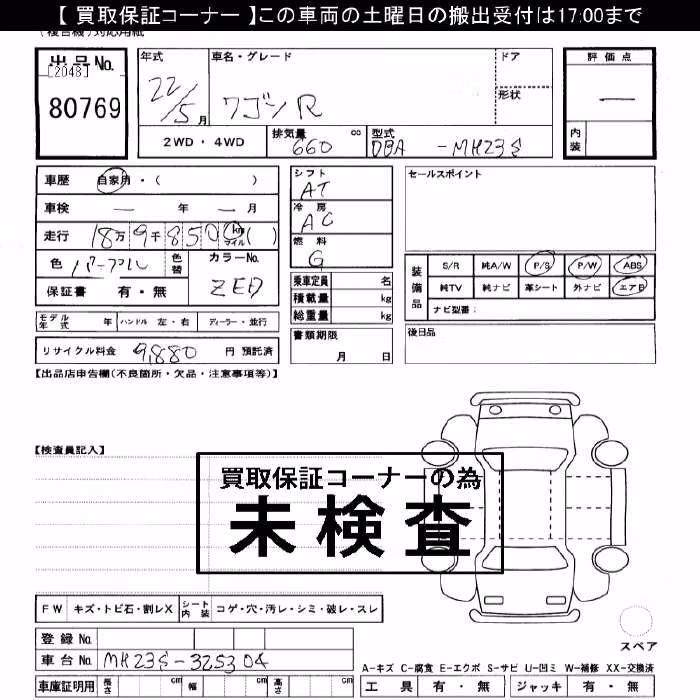 【 買取保証コーナー 】この車両の土曜日の搬出受付は17:00まで
(複合機)対応用紙
出品No.
[2048]
80769
年式
22/5月
車名・グレード
ワゴンR
ドア
形状
2WD・4WD
排気量
660 cc
型式
DBA -MH23S
評価点
—
内装
車歴 自家用・( )
車検 — 年 — 月
走行 18万9千850 km マイル ( )
色 パープル
色替
カラーNo.
ZED
保証書 有・無
シフト
AT
冷房
AC
燃料
G
乗車定員 名
積載量 kg
総重量 kg
セールスポイント
装備品
S/R 純A/W P/S P/W ABS
純TV 純ナビ 革シート 外ナビ エアB
ナビ型番:
モデル年式 年 ハンドル 左・右 ディーラー・並行
書類期限
月 日
後日品
リサイクル料金 9,880 円 預託済
【出品店申告欄(不良箇所・欠品・注意事項等)】
【検査員記入】
買取保証コーナーの為
未検査
FW キズ・トビ石・割レX シート内装 コゲ・穴・汚レ・シミ・破レ・スレ
登録No.
車台No. MH23S-325304
スペア
A-キズ C-腐食 E-エクボ S-サビ U-凹ミ W-補修 XX-交換済
車庫証明用 長さ cm 幅 cm 高さ cm
工具 有・無 ジャッキ 有・無